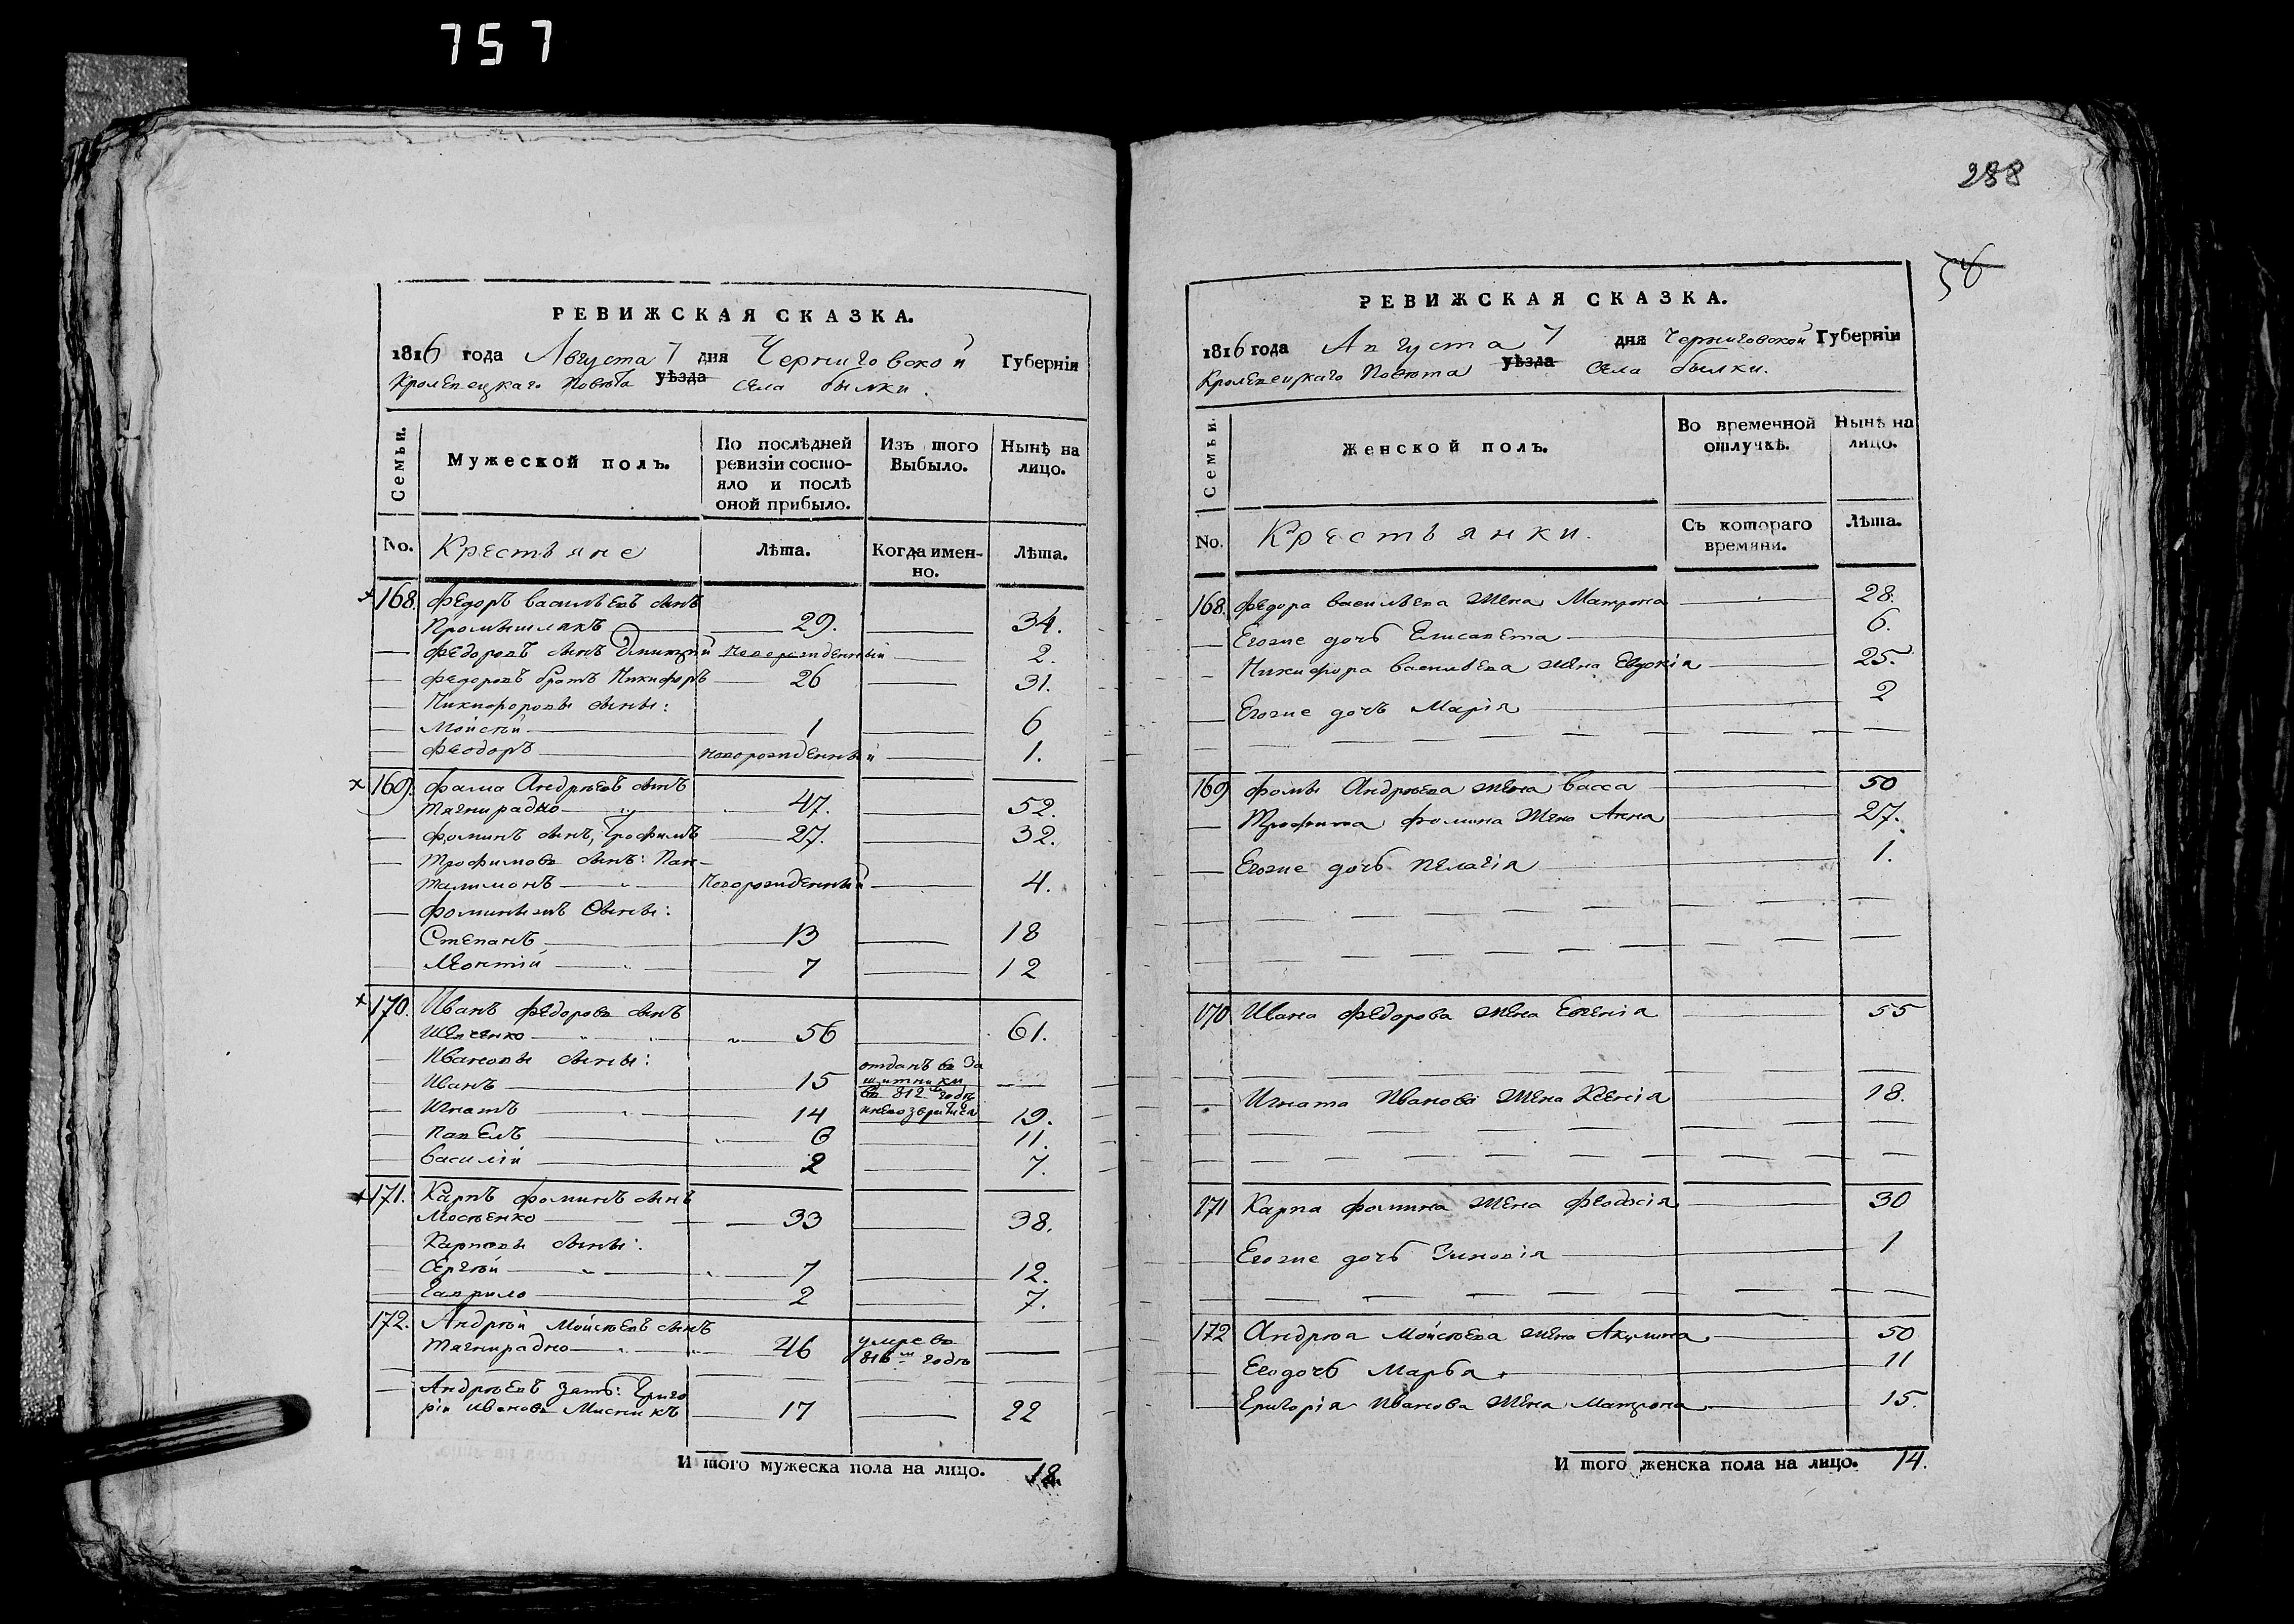 757
РЕВИЖСКАЯ СКАЗКА.
1816 года Августа 7 дня Черниговской Губерніи
Кролевецкаго Повѣта уѣзда Села былки.
Семьи.
Мужеской полъ.
По послѣдней ревизіи состо-
яло и послѣ оной прибыло.
Изъ того Выбыло.
Нынѣ на лицо.
No. Крестьяне Лѣта. Когда имен-
но. Лѣта.
168. Федоръ васильевъ сынъ
29. 34.
Федоровъ сынъ Дмитрій новорожденный 2.
Федоровъ братъ Никифоръ 26 31.
Никифоровы сыны:
Мойсѣй 1 6
Феодоръ новорожденный 1.
169. Фома Андрѣевъ сынъ
Тягнирадно 47. 52.
Фоминъ сынъ, Трофимъ 27. 32.
Трофимовъ сынъ: Пан-
талимонъ новорожденный 4.
Фомины Сыны:
Степанъ 13 18
Леонтій 7 12
170. Иванъ Федоровъ сынъ
Шевченко 56 61.
Ивановы сыны:
Иванъ 15 отданъ въ За
щитники
въ 812 годѣ
Игнатъ 14 19.
Павелъ 6 11.
Василій 2 7.
171. Карпъ Фоминъ сынъ
33 38.
Карповы сыны:
Сергѣй 7 12.
Гаврило 2 7.
172. Андрѣй Мойсѣевъ сынъ
Тягнирадно 46 умре въ
816м годѣ
Андрѣевъ зять: Григо
рій Ивановъ Мисникъ 17 22
И того мужеска пола на лицо. 18.
288
56
РЕВИЖСКАЯ СКАЗКА.
1816 года Августа 7 дня Черниговской Губерніи
Кролевецкаго Повѣта уѣзда Села былки.
Семьи.
Женской полъ.
Во временной отлучкѣ.
Нынѣ на лицо.
No. Крестьянки. Съ котораго времяни. Лѣта.
168. Федора васильева жена Матрона 28.
Егоже дочь Елисавета 6.
Никифора васильева жена Евдокія 25.
Егоже дочь Марія 2
169 Фомы Андрѣева жена васса 50
Трофима Фомина жена Анна 27.
Егоже дочь Пелагія 1.
170 Ивана Федорова жена Евгенія 55
Игната Иванова жена Ксенія 18.
171 Карпа Фомина жена Феодосія 30
Егоже дочь Зиновія 1
172 Андрѣя Мойсѣева жена Акулина 50
Егодочь Марфа 11
Григорія Иванова жена Матрона 15.
И того женска пола на лицо. 14.